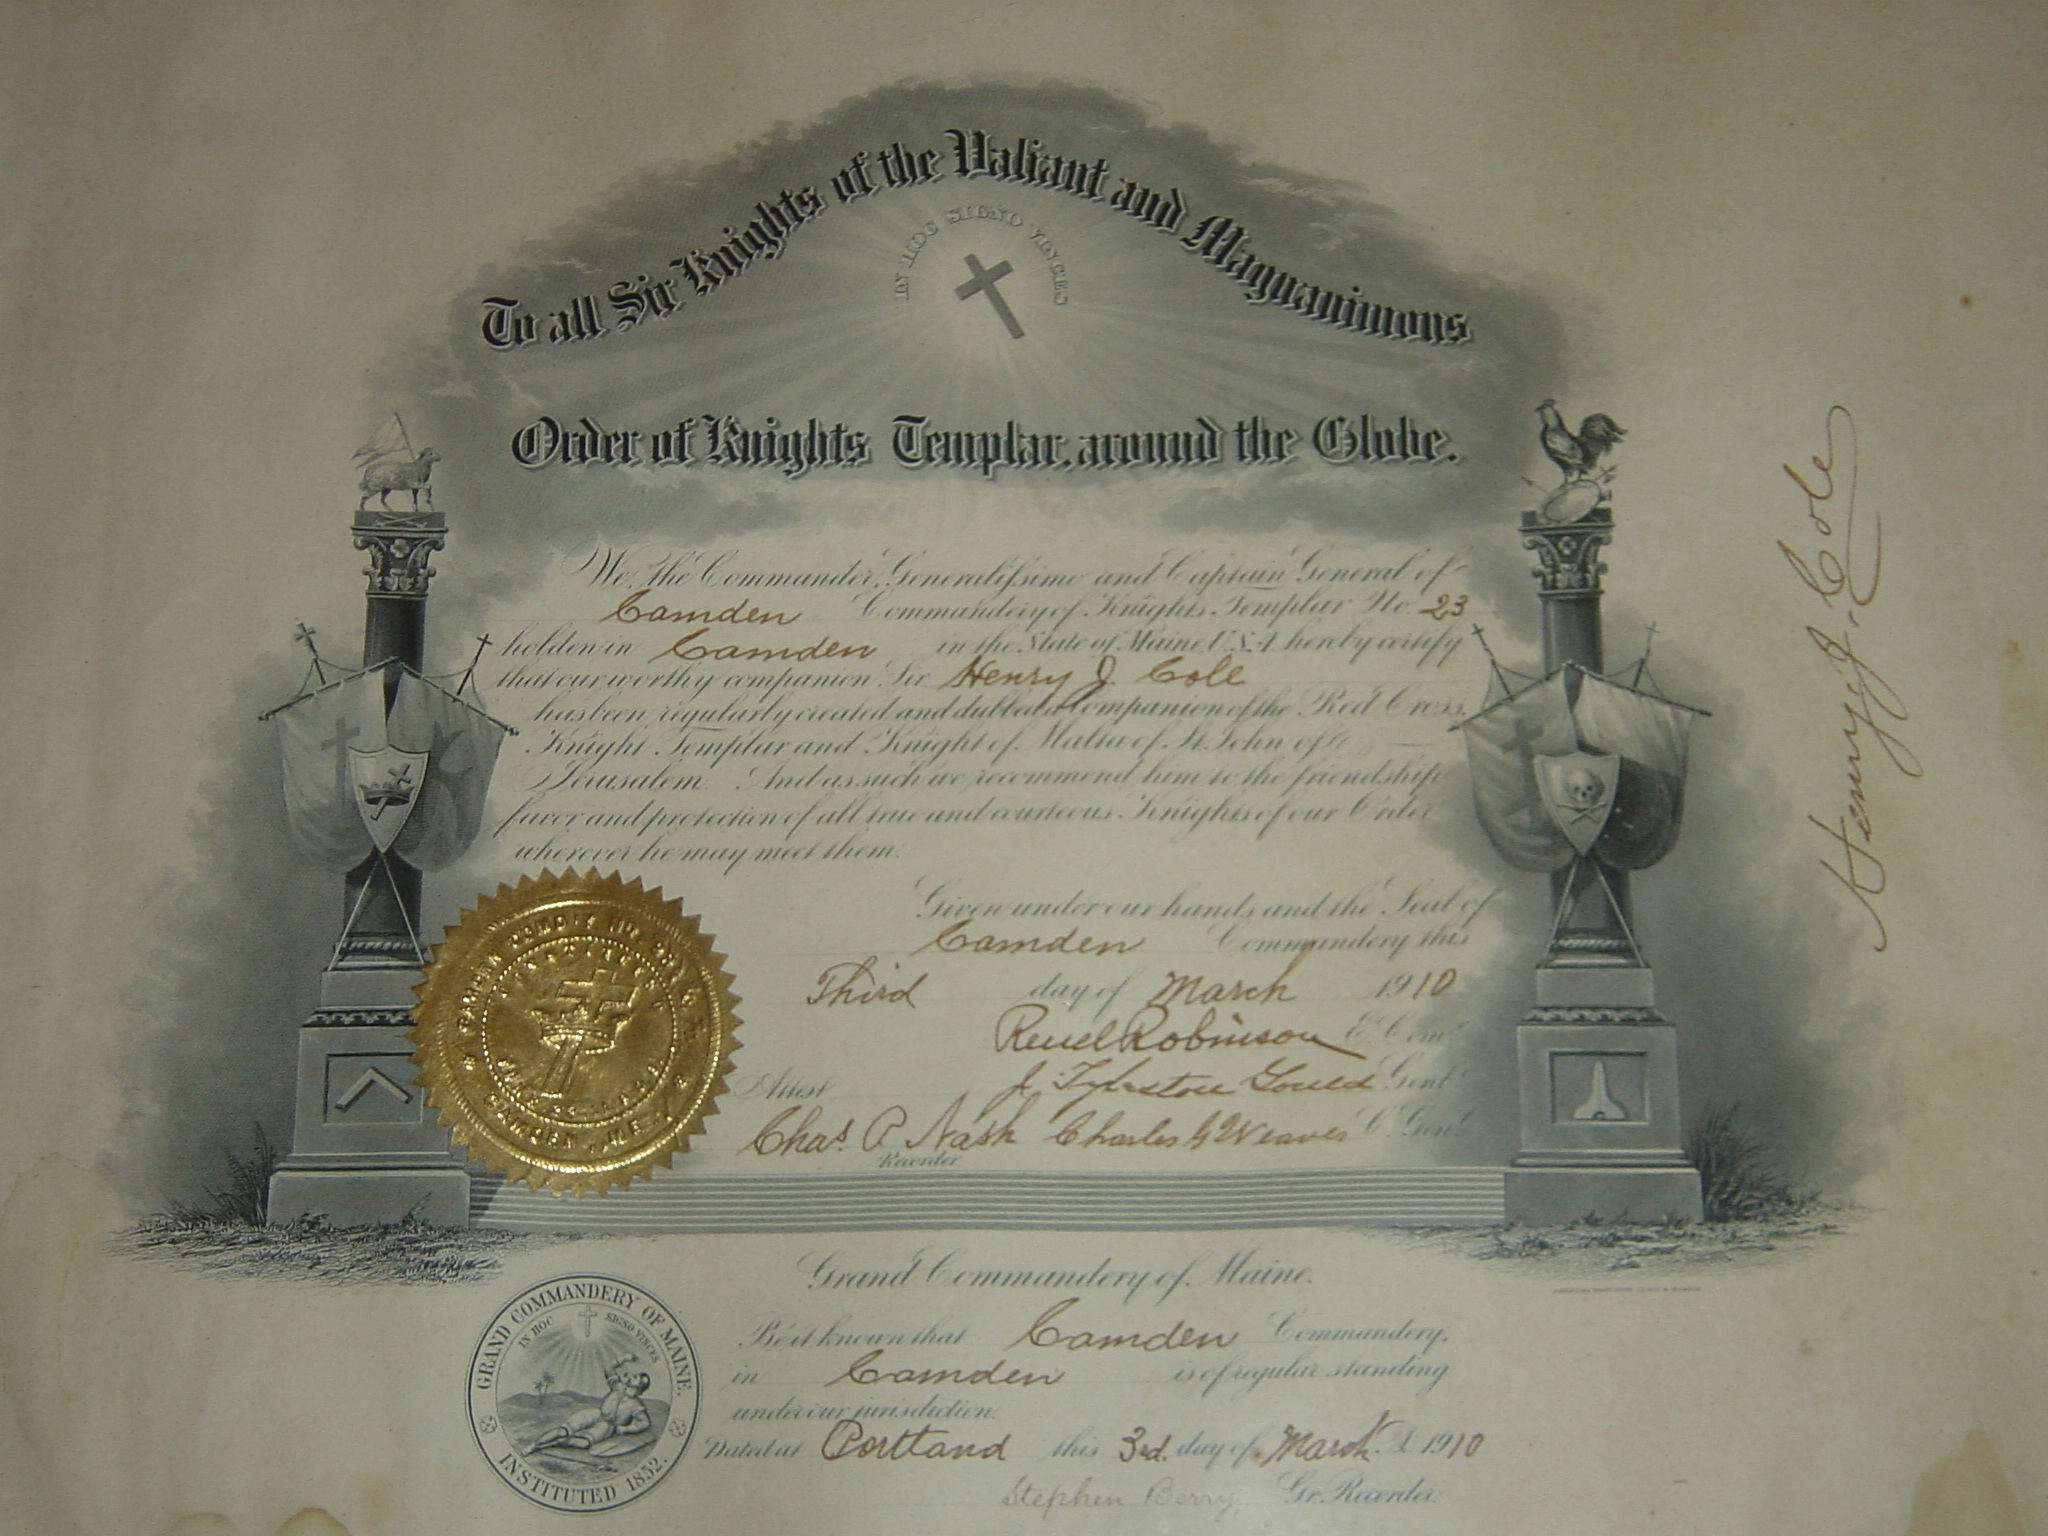 To all Sir Knights of the Valiant and Magnanimous
IN HOC SIGNO VINCES
Order of Knights Templar, around the Globe.
We, the Commander, Generalissimo and Captain General of
Camden Commandery of Knights Templar No. 23
holden in Camden in the State of Maine, U.S.A. hereby certify
that our worthy companion Sir Henry J. Cole
has been regularly created and dubbed a Companion of the Red Cross,
Knight Templar and Knight of Malta of St. John of
Jerusalem. And as such we recommend him to the friendship
favor and protection of all true and courteous Knights of our Order
wherever he may meet them.
Given under our hands and the Seal of
Camden Commandery this
Third day of March 1910
Reuel Robinson E. Com.
J. Tylestou Gould Genl.
Attest
Chas. P. Nash Charles G Weaver C. Genl.
Recorder
CAMDEN, ME.
Henry J. Cole
Grand Commandery of Maine.
Be it known that Camden Commandery,
in Camden is of regular standing
under our jurisdiction.
Dated at Portland this 3rd. day of March A. 1910
Stephen Berry, Gr. Recorder.
GRAND COMMANDERY OF MAINE.
IN HOC SIGNO VINCES
INSTITUTED 1852.